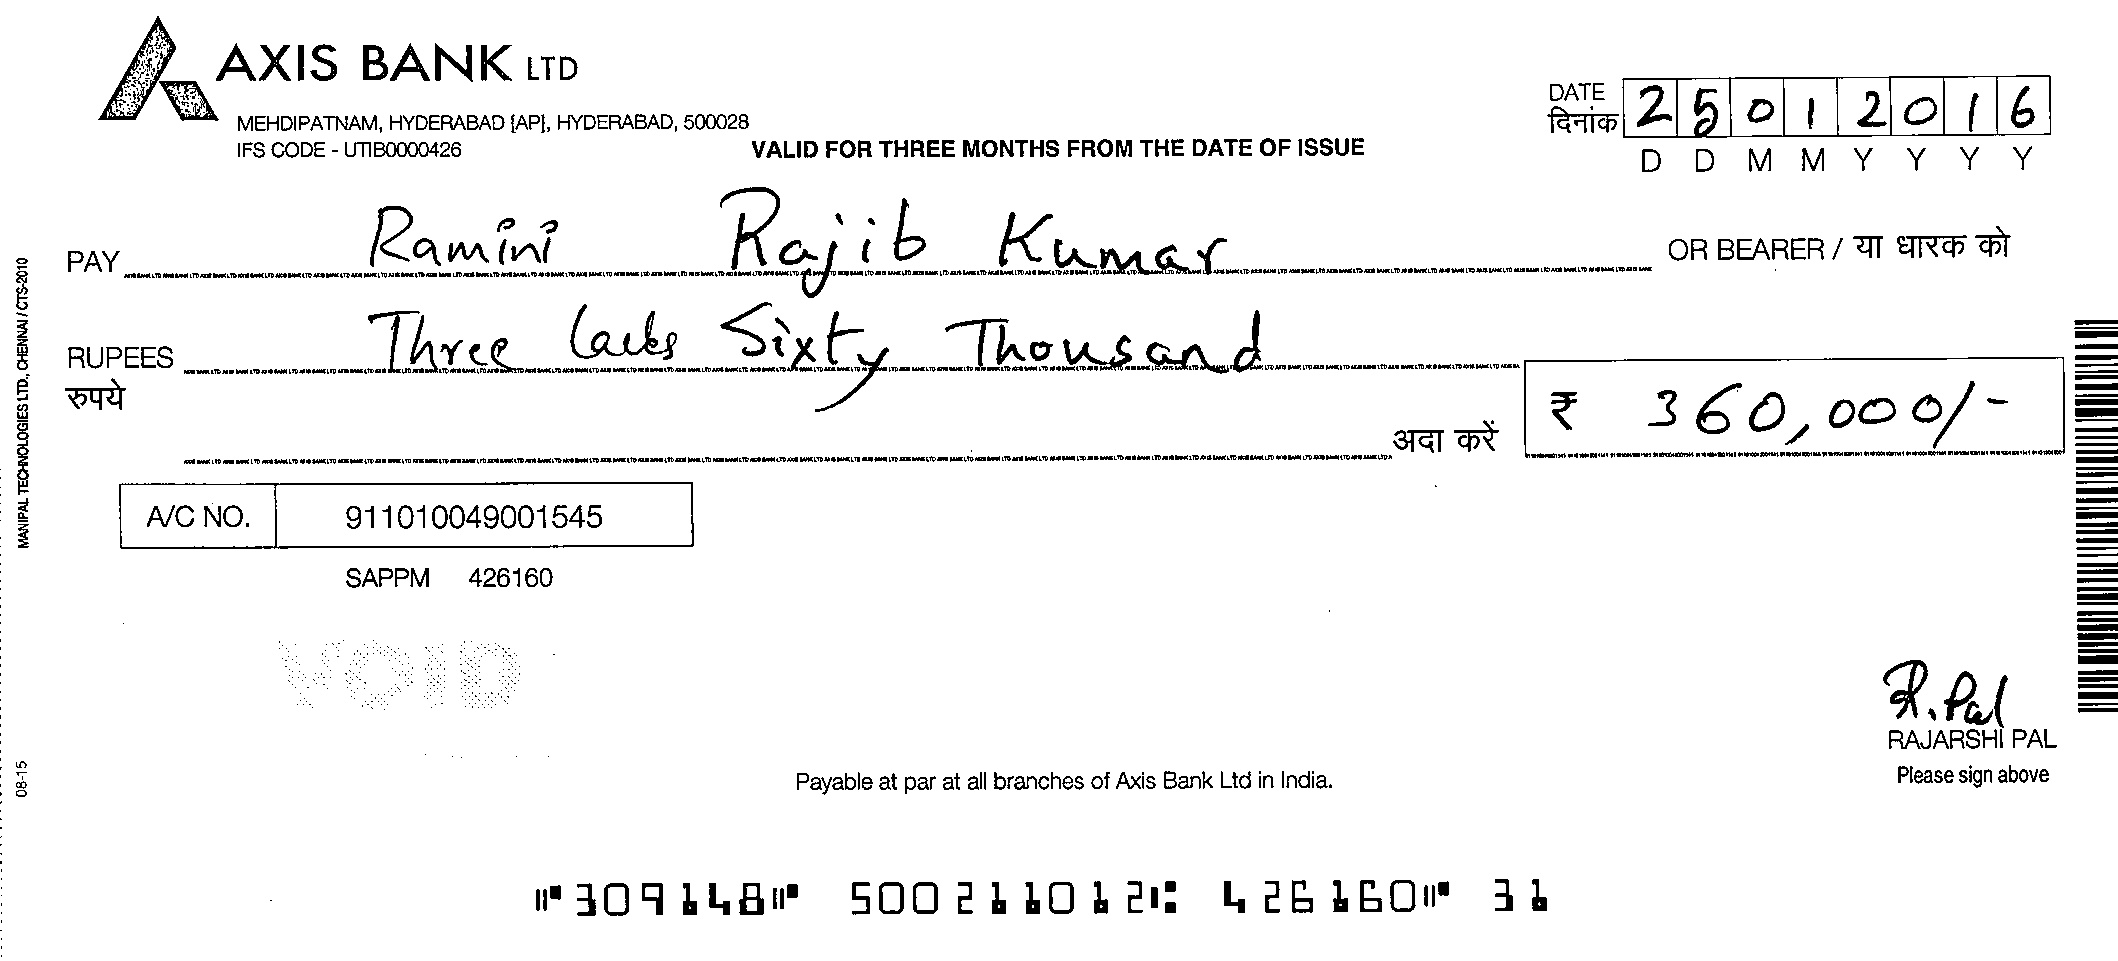 AXIS BANK LTD
MEHDIPATNAM, HYDERABAD [AP], HYDERABAD, 500028
IFS CODE - UTIB0000426
VALID FOR THREE MONTHS FROM THE DATE OF ISSUE
DATE दिनांक 25012016
D D M M Y Y Y Y
PAY Ramini Rajib Kumar OR BEARER / या धारक को
RUPEES रुपये Three lacks Sixty Thousand
अदा करें ₹ 360,000/-
A/C NO. 911010049001545
SAPPM 426160
VOID
R. Pal
RAJARSHI PAL
Please sign above
Payable at par at all branches of Axis Bank Ltd in India.
⑈309148⑈ 500211012⑆ 426160⑈ 31
MANIPAL TECHNOLOGIES LTD., CHENNAI / CTS-2010
08-15